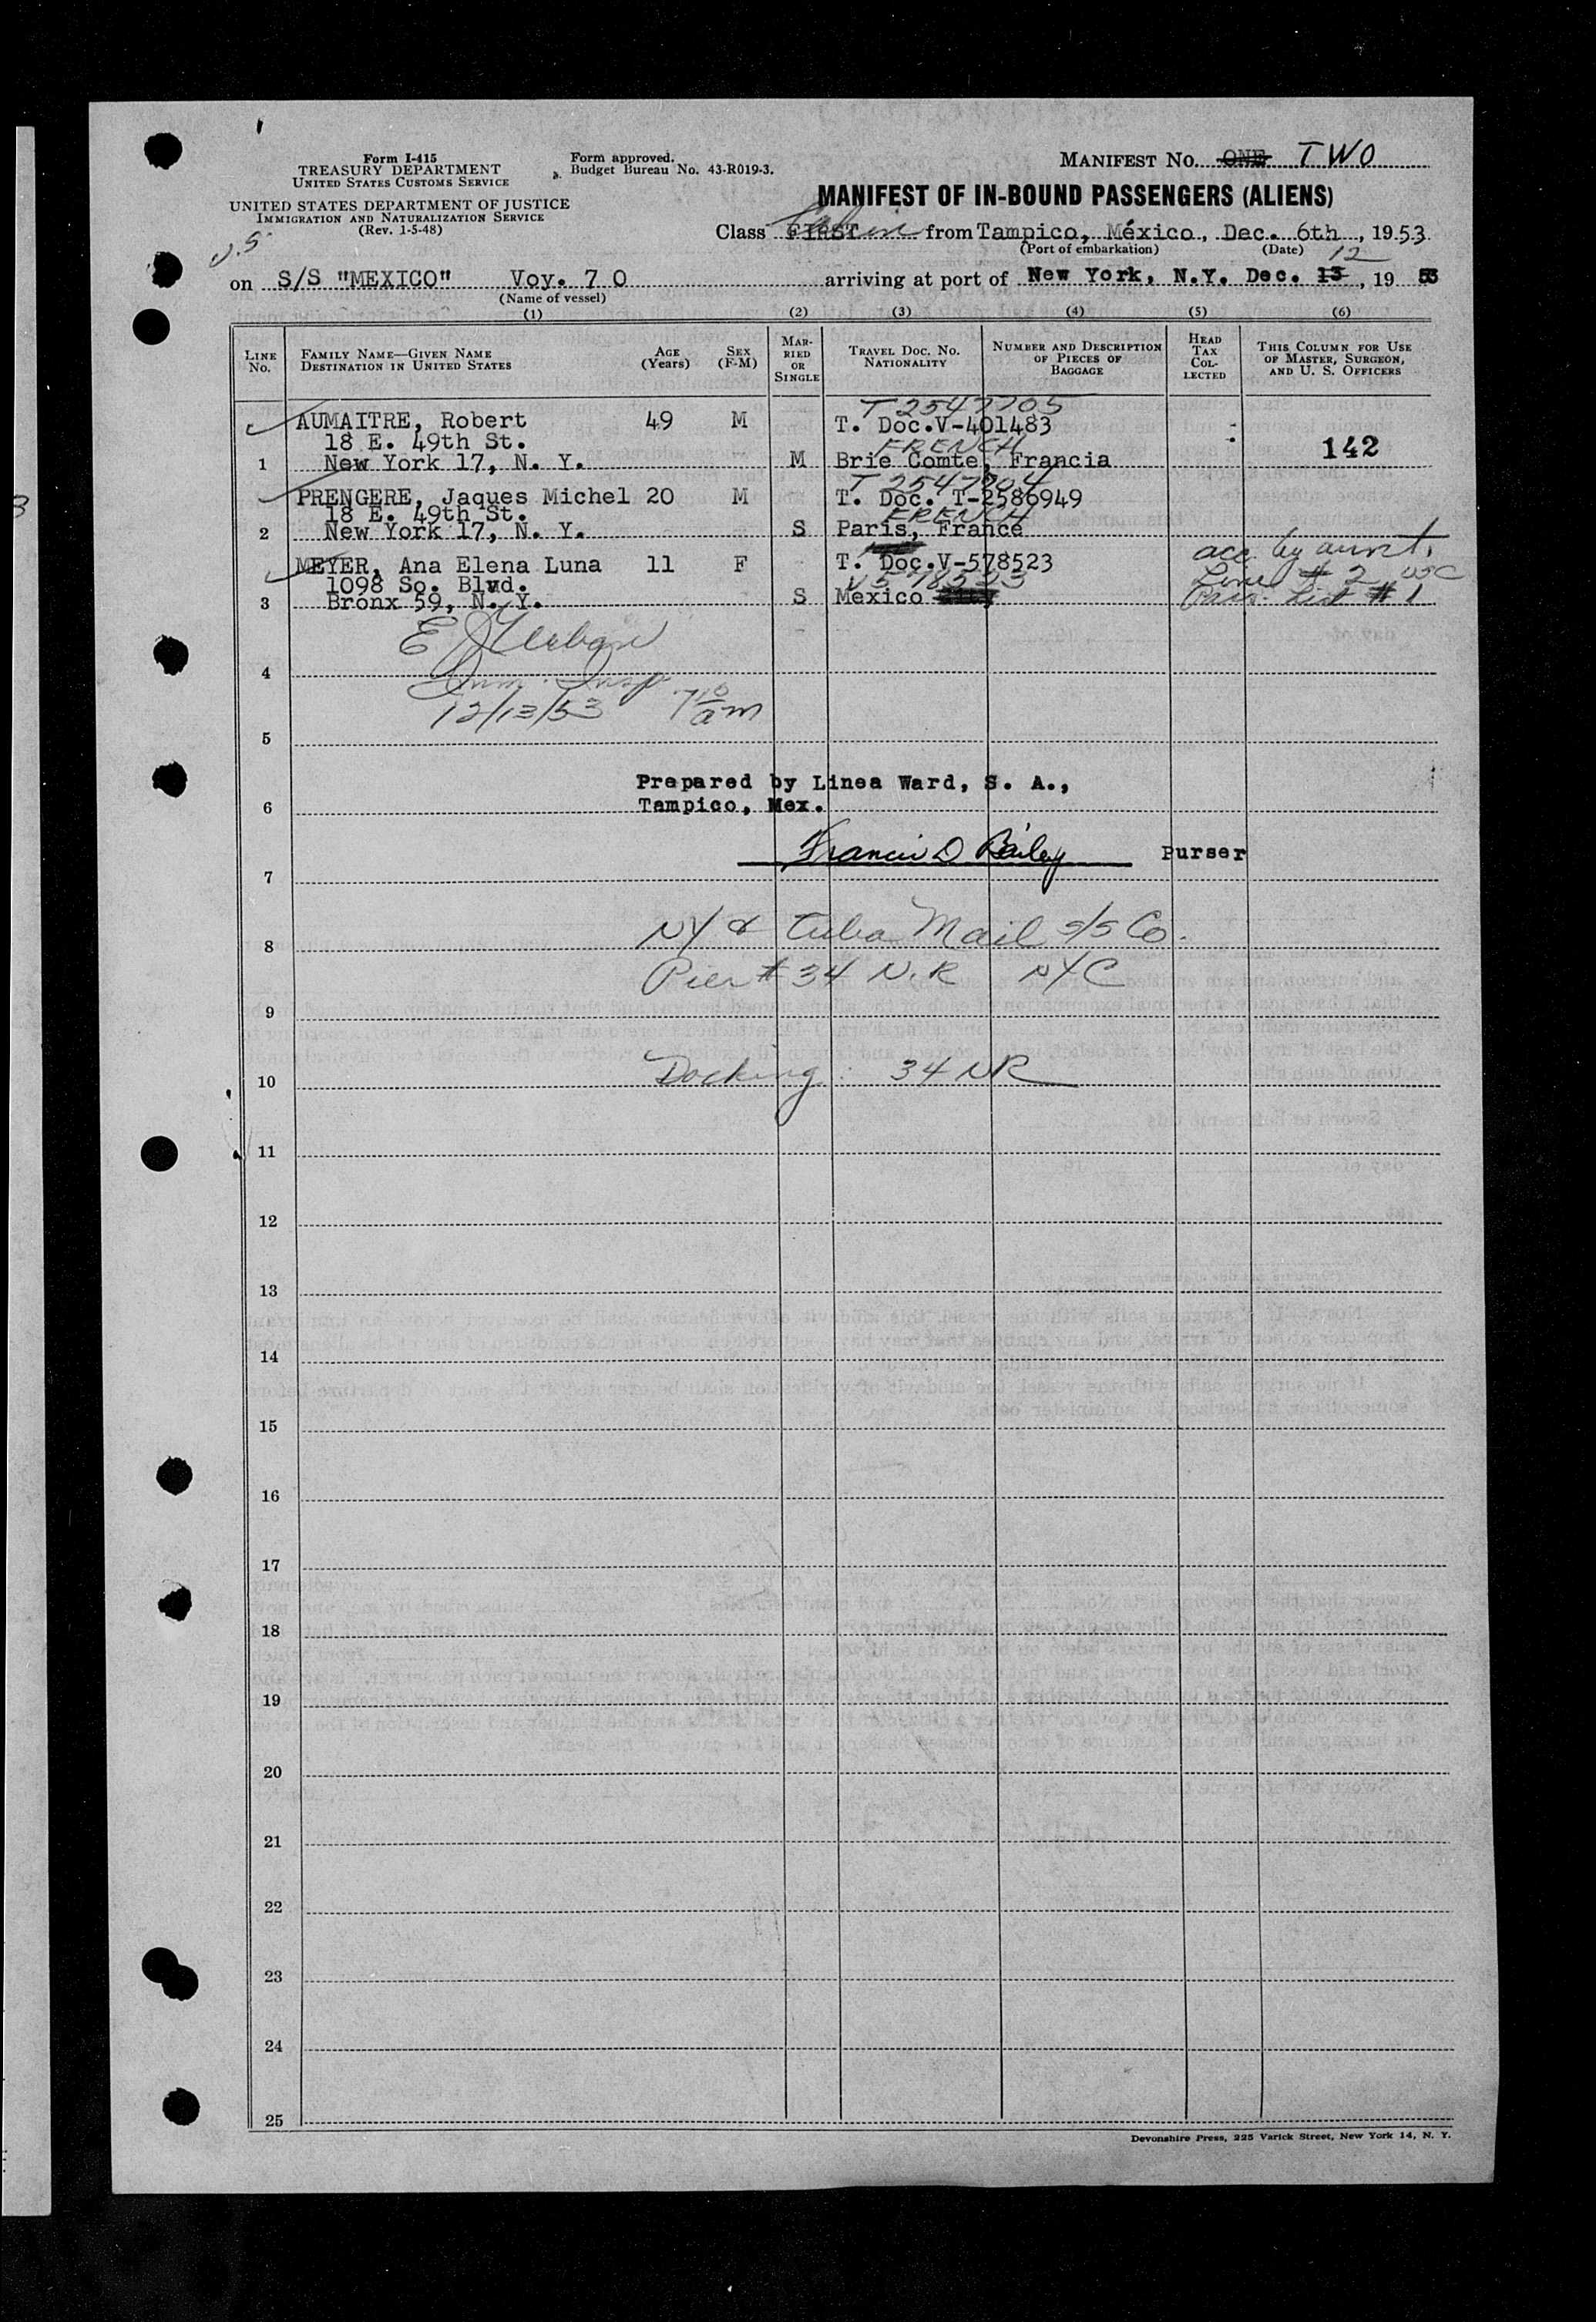 Form I-415
TREASURY DEPARTMENT
UNITED STATES CUSTOMS SERVICE
UNITED STATES DEPARTMENT OF JUSTICE
IMMIGRATION AND NATURALIZATION SERVICE
(Rev. 1-5-48)
Form approved.
Budget Bureau No. 43-R019-3.
MANIFEST NO. ONE TWO
MANIFEST OF IN-BOUND PASSENGERS (ALIENS)
Class FIRST Cabin from Tampico, México, Dec. 6th, 1953
(Port of embarkation) (Date)
on S/S "MEXICO" Voy. 70 arriving at port of New York, N.Y. Dec. 13 12, 19 53
(Name of vessel)
(1) (2) (3) (4) (5) (6)
LINE NO.
FAMILY NAME—GIVEN NAME
DESTINATION IN UNITED STATES
AGE (Years)
SEX (F-M)
MARRIED OR SINGLE
TRAVEL DOC. NO.
NATIONALITY
NUMBER AND DESCRIPTION OF PIECES OF BAGGAGE
HEAD TAX COLLECTED
THIS COLUMN FOR USE OF MASTER, SURGEON, AND U. S. OFFICERS
T 2547705
AUMAITRE, Robert 49 M T. Doc.V-401483
18 E. 49th St. FRENCH 142
1 New York 17, N. Y. M Brie Comte, Francia
T 2547704
PRENGERE, Jaques Michel 20 M T. Doc. T-2586949
18 E. 49th St. FRENCH
2 New York 17, N. Y. S Paris, France
MEYER, Ana Elena Luna 11 F T. Doc.V-578523 acc by aunt,
1098 So. Blvd. V578523 Line # 2 USC
3 Bronx 59, N. Y. S Mexico Pass. List # 1
4
Imm. Insp.
12/13/53 7 10 am
5
Prepared by Linea Ward, S. A.,
6 Tampico, Mex.
Francis D. Bailey Purser
7
NY & Cuba Mail S/S Co.
8
Pier # 34 N.R NYC
9
Docking: 34 NR
10
11
12
13
14
15
16
17
18
19
20
21
22
23
24
25
Devonshire Press, 225 Varick Street, New York 14, N. Y.